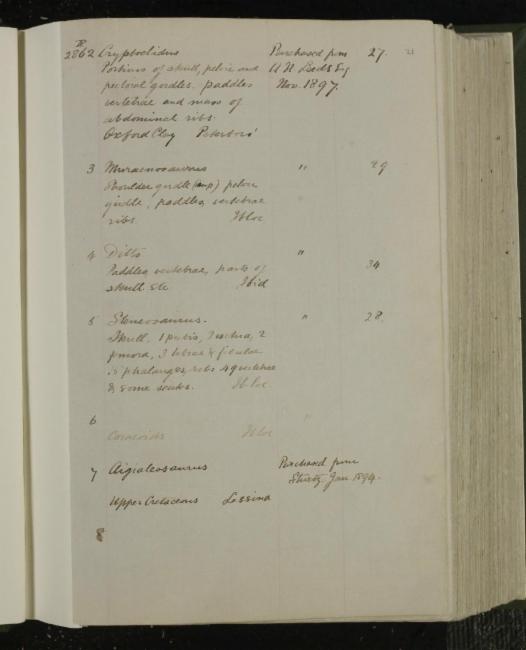 R
2862 Cryptoclidus Purchased from 27. 21
Portions of skull, pelvic and A N Leeds Esq
pectoral girdles. paddles Nov. 1897.
vertebrae and mass of
abdominal ribs.
Oxford Clay Peterboro'
3 Muraenosaurus " 29
Shoulder girdle (imp) pelvic
girdle, paddles, vertebrae
ribs. Ib loc
4 Ditto " 34
Paddles, vertebrae, parts of
skull etc Ibid
5 Steneosaurus. " 28.
Skull, 1 pubis, 2 ischia, 2
femora, 3 tibiae & fibulae
phalanges, ribs vertebrae
& some scutes. Ib loc.
6 "
Coracoids Ib loc
7 Aigialosaurus Purchased from
Sturtz Jan 1894.
Upper Cretaceous Lessina
8